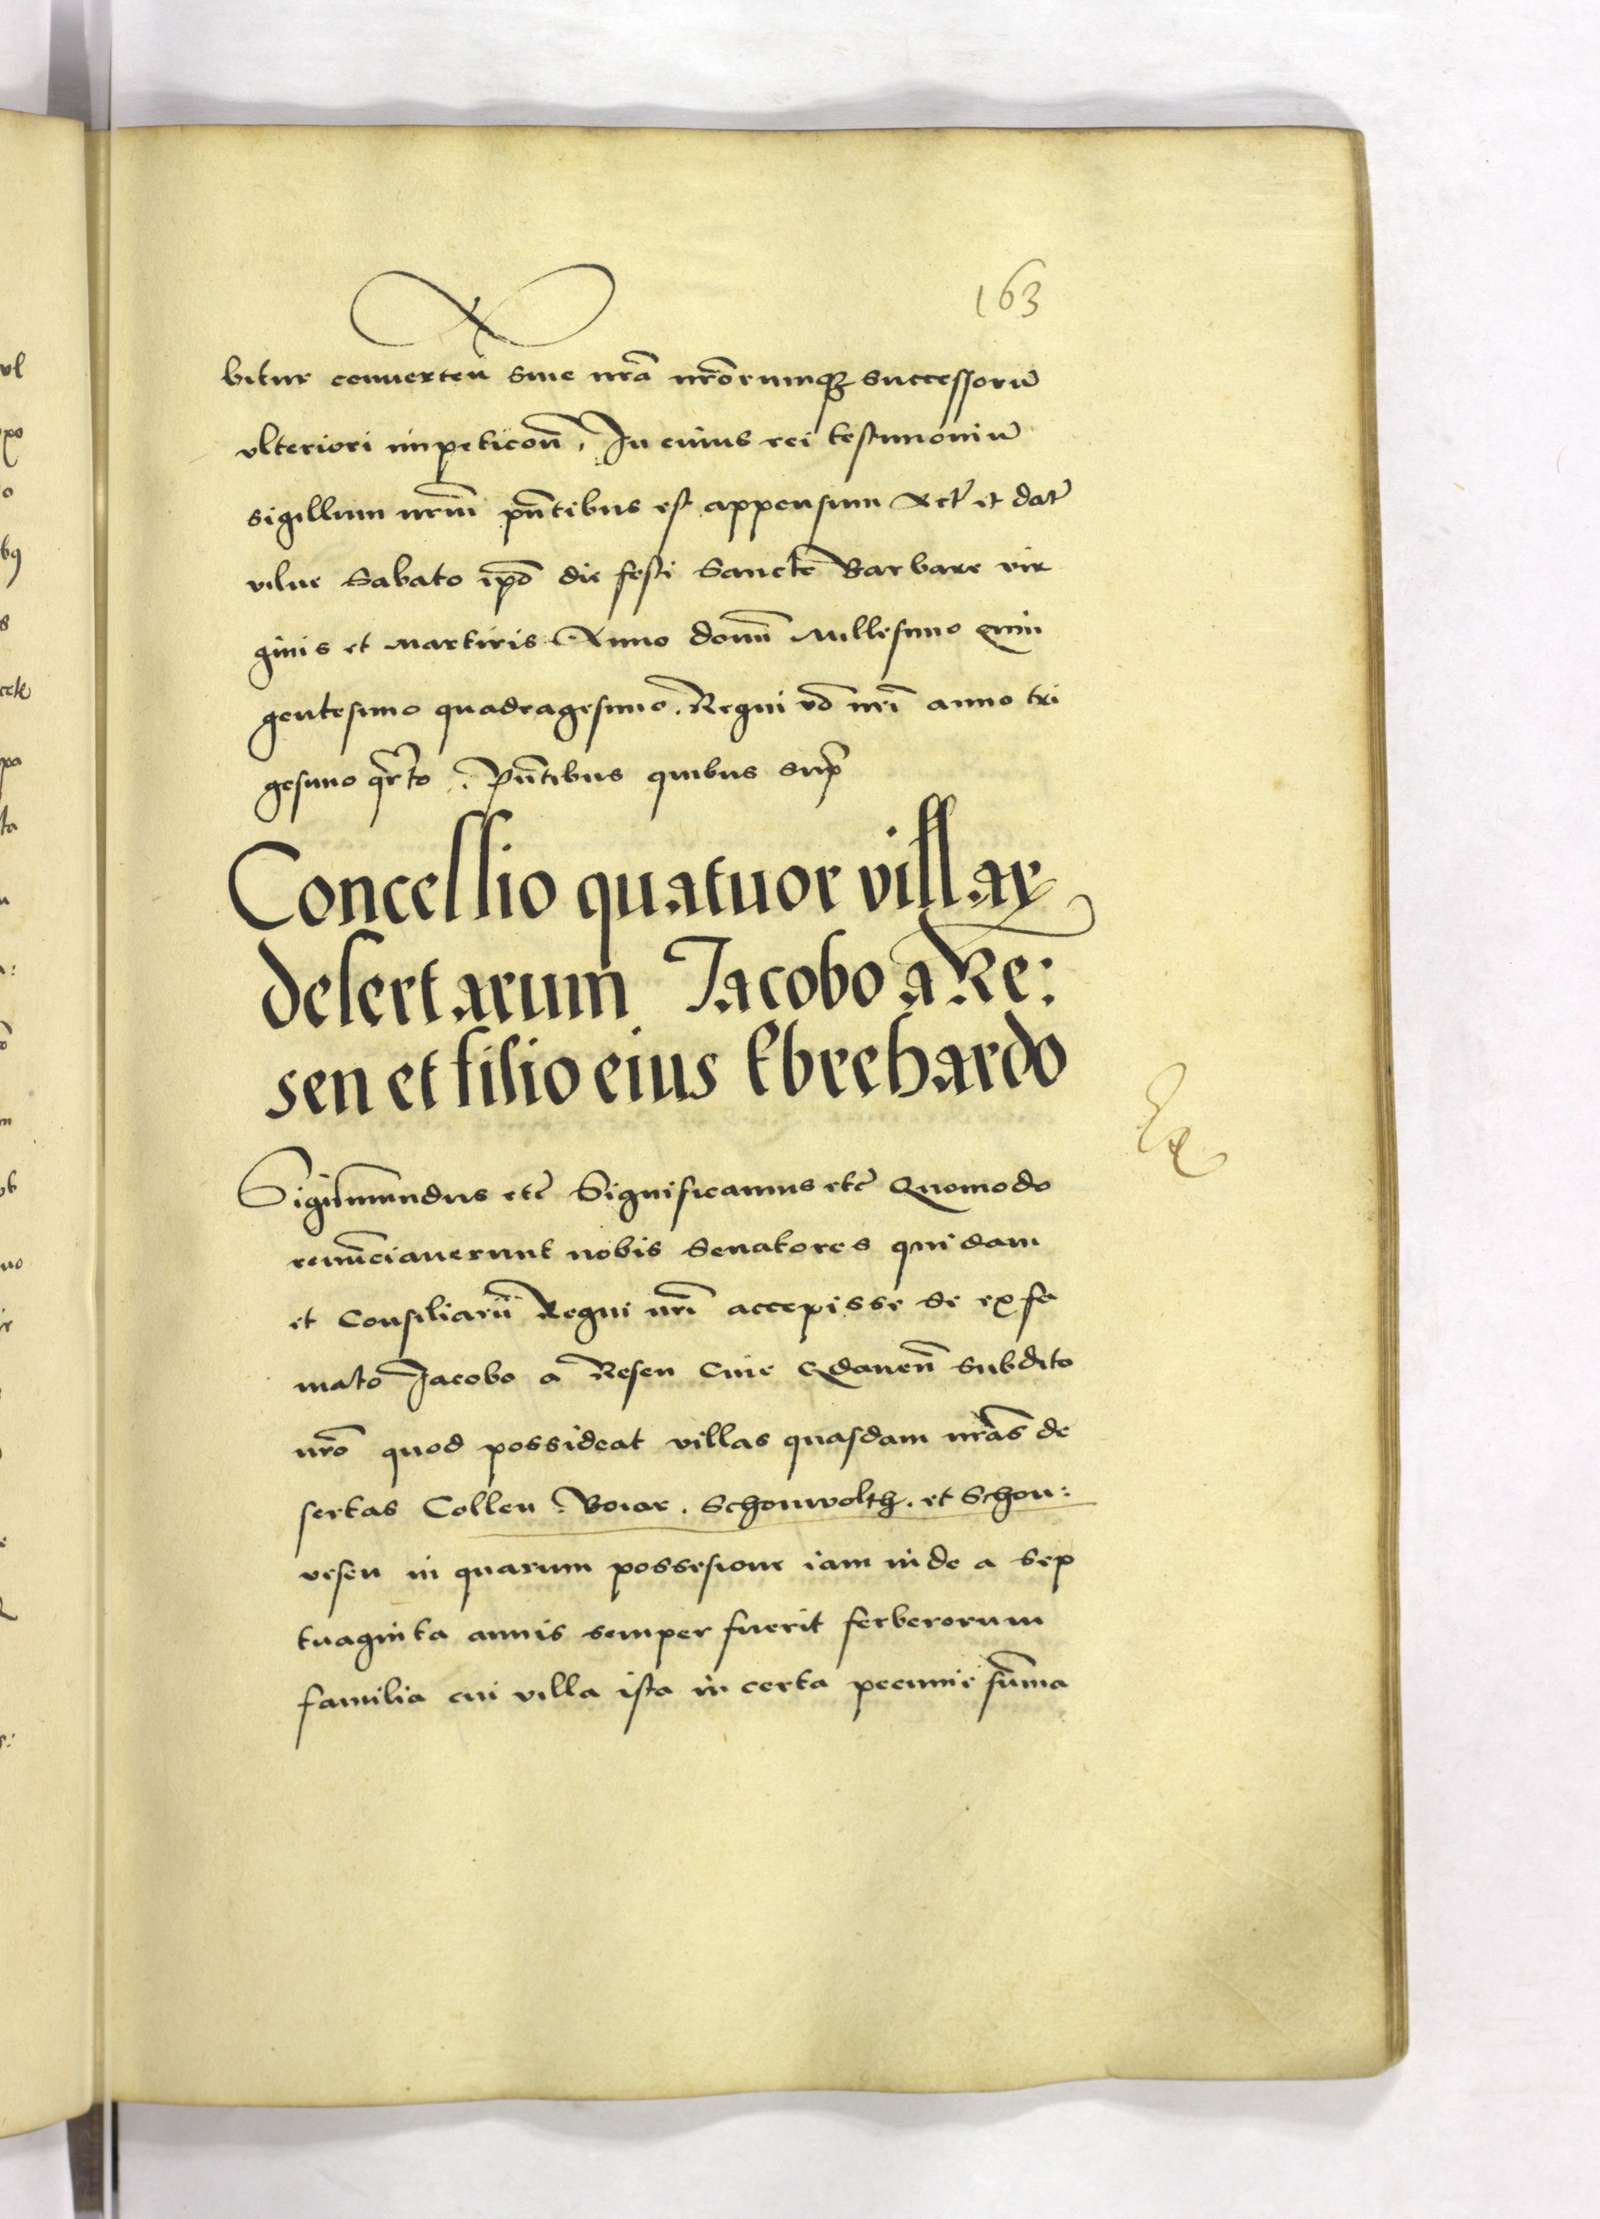 163
bitur conuerteñ sine nr̃a nr̃orumqꝫ successorũ
vlteriori impeticoñ, In cuius rei testimoniũ
sigillum nr̃m p̃ntibus est appensum Act̃ et dat̃
vilne Sabato ip̃o die festi Sancte Barbare vir
ginis et martiris Anno domĩ Millesimo Quin
gentesimo quadragesimo. Regni ṽo nr̃i anno tri
gesimo qr̃to. P̃ntibus quibus sup̃
Concessio quatuor villaꝝ
desertarum Jacobo a Re:
sen et filio eius Ebrehardo
Sigismundus etc̃ Significamus etc̃ Quomodo
renũciauerunt nobis Senatores quidam
et Consiliarij Regni nr̃i accepisse se ex fa
mato Jacobo a Resen Ciue Gdaneñ subdito
nr̃o quod possideat villas quasdam nr̃as de
sertas Collen. Boiar. Schonwolth. et Schon:
vesen in quarum possesione iam inde a sep
tuaginta annis semper fuerit ferberorum
familia cui villa ista in certa pecunie sũma